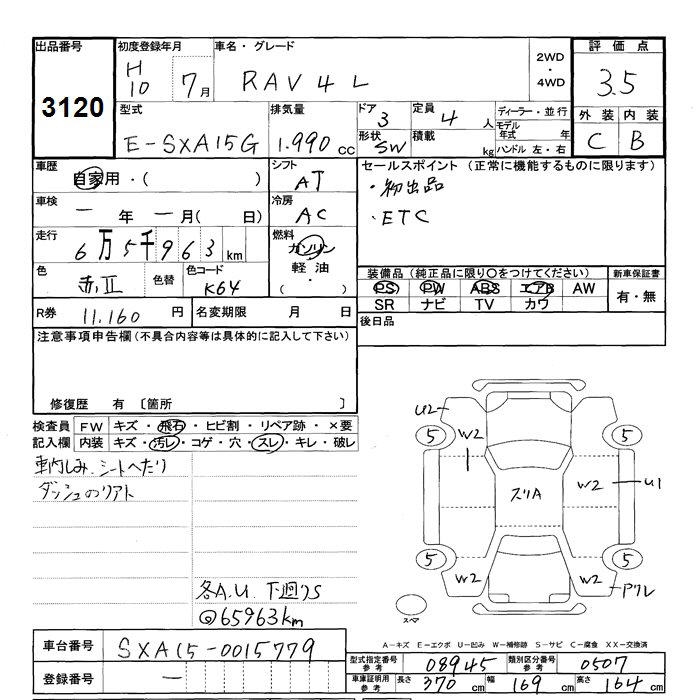 出品番号 初度登録年月 車名・グレード 2WD ・ 4WD 評価点
3120 H10 7月 RAV4 L 3.5
型式 排気量 ドア 3 定員 4 人 ディーラー・並行 外装 内装
E-SXA15G 1.990 cc 形状 SW 積載 kg モデル年式 年 ハンドル 左・右 C B
車歴 自家用・( ) シフト AT セールスポイント (正常に機能するものに限ります)
車検 ー年 ー月( 日) 冷房 AC ・初出品
・ETC
走行 6万5千963km 燃料 ガソリン 軽油 ・( )
色 赤II 色替 色コード K64 装備品 (純正品に限り○をつけてください) 新車保証書
PS PW ABS エアB AW 有・無
SR ナビ TV カワ
R券 11.160 円 名変期限 月 日 後日品
注意事項申告欄 (不具合内容等は具体的に記入して下さい)
修復歴 有 〔箇所 〕
検査員 FW キズ・飛石・ヒビ割・リペア跡・×要
記入欄 内装 キズ・汚レ・コゲ・穴・スレ・キレ・破レ
車内しみ、シートへたり
各A.U. 下廻りS
@65963km
U2 5 W2 5
ズリA W2 U1
5 W2 W2 5
スペア
A-キズ E-エクボ U-凹み W-補修跡 S-サビ C-腐食 XX-交換済
車台番号 SXA15-0015779
型式指定番号 参考 08945 類別区分番号 参考 0507
登録番号 ー 車庫証明用 参考 長さ 370 cm 幅 169 cm 高さ 164 cm